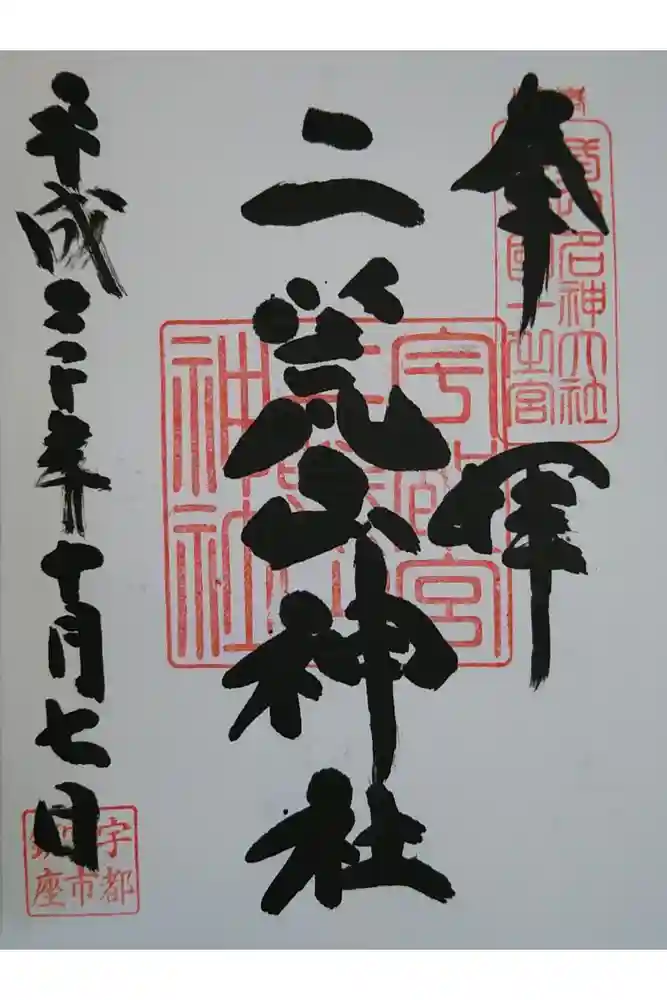 奉拝
名神大社
国一之宮
二荒山神社
宇都宮
二荒山
神社
平成三十年十月七日
宇都
宮市
鎮座